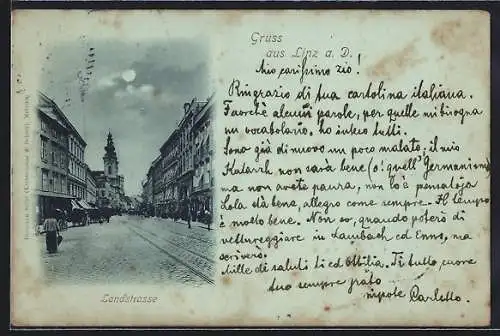 Gruss
aus Linz a. D.
Mio carissimo zio!
Ringrazio di tua cartolina italiana.
alcuni parole, per quelle mi bisogna
un vocabolario, ho inteso tutti.
Sono già di nuovo un poco malato; il mio
Katarrh non sarà bene (o! quell' Germanismo)
ma non avete paura, non lo è
Lola stà bena, allegro come sempre. Il tempo
è molto bene. Non so, quando poterò di
vettureggiare in Laubach ed Enns, ma
scriverò.
Mille di saluti ti ed Ottilia. Di tutto cuore
tuo sempre
nipote Carletto.
Landstrasse